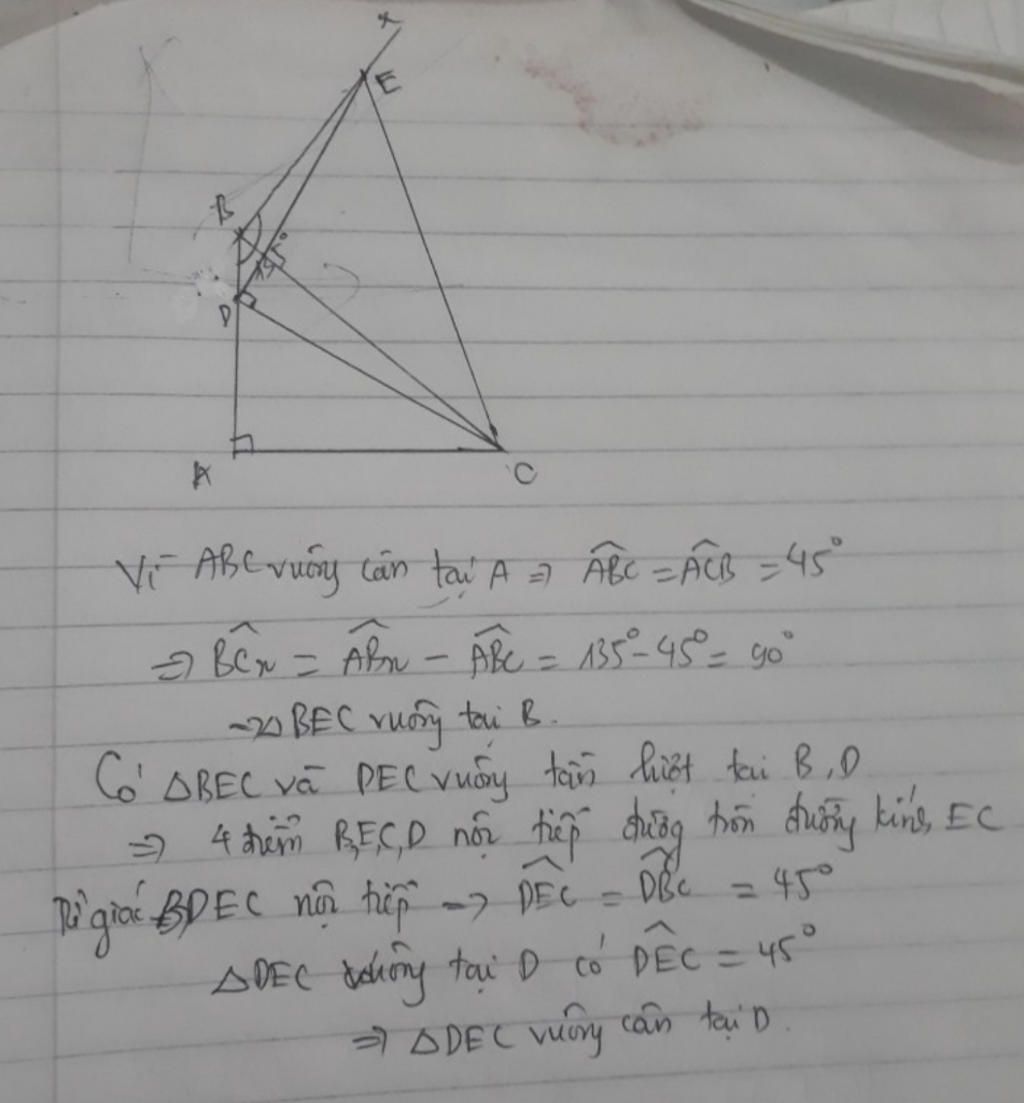 x
E
B
45°
D
A
C
Vì ABC vuông cân tại A ⇒ ABC = ACB = 45°
⇒ BCx = ABx - ABC = 135° - 45° = 90°
→ △ BEC vuông tại B.
Có △BEC và DEC vuông lần lượt tại B, D
⇒ 4 điểm B,E,C,D nội tiếp đường tròn đường kính EC
Tứ giác BDEC nội tiếp → DEC = DBC = 45°
△DEC vuông tại D có DEC = 45°
⇒ △DEC vuông cân tại D.